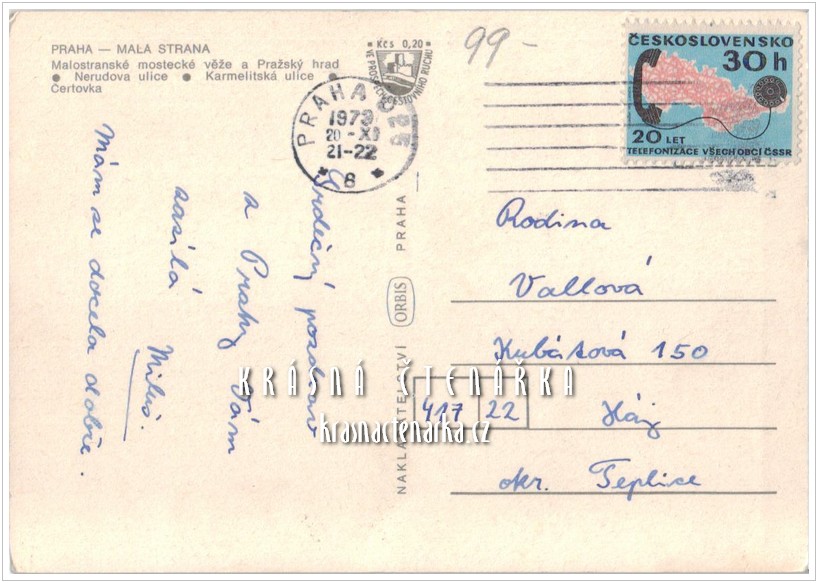 PRAHA — MALÁ STRANA
Malostranské mostecké věže a Pražský hrad
● Nerudova ulice ● Karmelitská ulice ●
Čertovka
Kčs 0,20
99-
ČESKOSLOVENSKO
30 h
20 LET
TELEFONIZACE VŠECH OBCÍ ČSSR
PRAHA
1973
20 -XI
21-22
8
Srdečný pozdrav
z Prahy Vám
zasílá
Miluš.
Mám se docela dobře.
NAKLADATELSTVÍ ORBIS PRAHA
Rodina
Vallová
Kubátová 150
417 22 Háj
okr. Teplice
KRÁSNÁ ČTENÁŘKA
krasnactenarka.cz